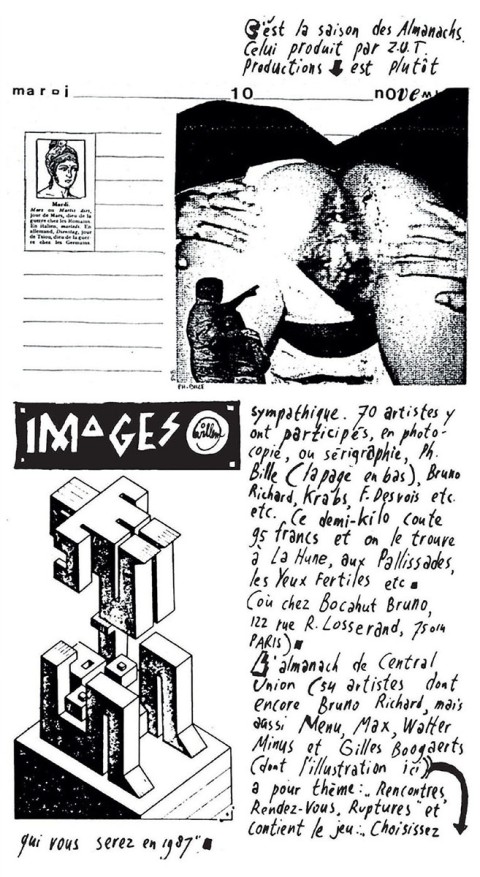 C'est la saison des Almanachs.
Celui produit par Z.U.T.
Productions est plutôt
mardi 10 novem
Mardi
Mars ou Martis dies,
jour de Mars, dieu de la
guerre chez les Romains.
En italien, martedi. En
allemand, Dienstag, jour
de Tsiou, dieu de la guer
re chez les Germains
PH. BILLE
IMAGES
Willem
sympathique. 70 artistes y
ont participés, en photo-
copie, ou sérigraphie, Ph.
Bille (la page en bas), Bruno
Richard, Krabs, F. Desvois etc.
etc. Ce demi-kilo coute
95 francs et on le trouve
à La Hune, aux Pallissades,
les Yeux Fertiles etc
(où chez Bocahut Bruno,
122 rue R. Losserand, 75014
PARIS)
L'almanach de Central
Union (54 artistes dont
encore Bruno Richard, mais
aussi Menu, Max, Walter
Minus et Gilles Boogaerts
(dont l'illustration ici)
a pour thème: „Rencontres,
Rendez-Vous, Ruptures" et
contient le jeu: „Choisissez
qui vous serez en 1987"